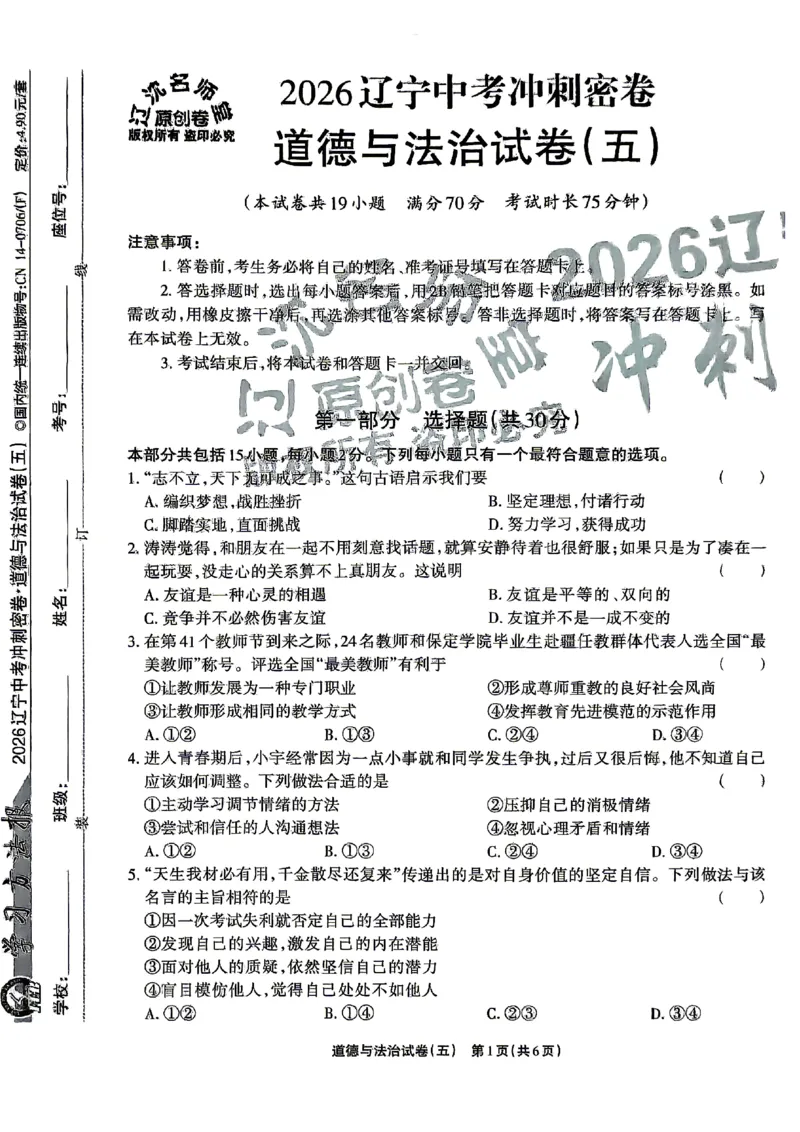 辽沈名师堂
原创卷
版权所有 盗印必究
2026辽宁中考冲刺密卷
道德与法治试卷(五)
(本试卷共19小题 满分70分 考试时长75分钟)
注意事项:
1. 答卷前,考生务必将自己的姓名、准考证号填写在答题卡上。
2. 答选择题时,选出每小题答案后,用2B铅笔把答题卡对应题目的答案标号涂黑。如
需改动,用橡皮擦干净后,再选涂其他答案标号。答非选择题时,将答案写在答题卡上。写
在本试卷上无效。
3. 考试结束后,将本试卷和答题卡一并交回。
第一部分 选择题(共30分)
本部分共包括15小题,每小题2分。下列每小题只有一个最符合题意的选项。
1. “志不立,天下无可成之事。”这句古语启示我们要 ( )
A. 编织梦想,战胜挫折 B. 坚定理想,付诸行动
C. 脚踏实地,直面挑战 D. 努力学习,获得成功
2. 涛涛觉得,和朋友在一起不用刻意找话题,就算安静待着也很舒服;如果只是为了凑在一
起玩耍,没走心的关系算不上真朋友。这说明 ( )
A. 友谊是一种心灵的相遇 B. 友谊是平等的、双向的
C. 竞争并不必然伤害友谊 D. 友谊并不是一成不变的
3. 在第41个教师节到来之际,24名教师和保定学院毕业生赴疆任教群体代表入选全国“最
美教师”称号。评选全国“最美教师”有利于 ( )
①让教师发展为一种专门职业 ②形成尊师重教的良好社会风尚
③让教师形成相同的教学方式 ④发挥教育先进模范的示范作用
A. ①② B. ①③ C. ②④ D. ③④
4. 进入青春期后,小宇经常因为一点小事就和同学发生争执,过后又很后悔,他不知道自己
应该如何调整。下列做法合适的是 ( )
①主动学习调节情绪的方法 ②压抑自己的消极情绪
③尝试和信任的人沟通想法 ④忽视心理矛盾和情绪
A. ①② B. ①③ C. ②④ D. ③④
5. “天生我材必有用,千金散尽还复来”传递出的是对自身价值的坚定自信。下列做法与该
名言的主旨相符的是 ( )
①因一次考试失利就否定自己的全部能力
②发现自己的兴趣,激发自己的内在潜能
③面对他人的质疑,依然坚信自己的潜力
④盲目模仿他人,觉得自己处处不如他人
A. ①② B. ①④ C. ②③ D. ③④
道德与法治试卷(五) 第1页(共6页)
学习方法报
2026辽宁中考冲刺密卷·道德与法治试卷(五) ◎国内统一连续出版物号:CN 14-0706/(F) 定价:4.90元/套
学校: 班级: 姓名: 考号: 座位号:
装 订 线
辽沈名师堂
原创卷
版权所有 盗印必究
2026辽
冲刺